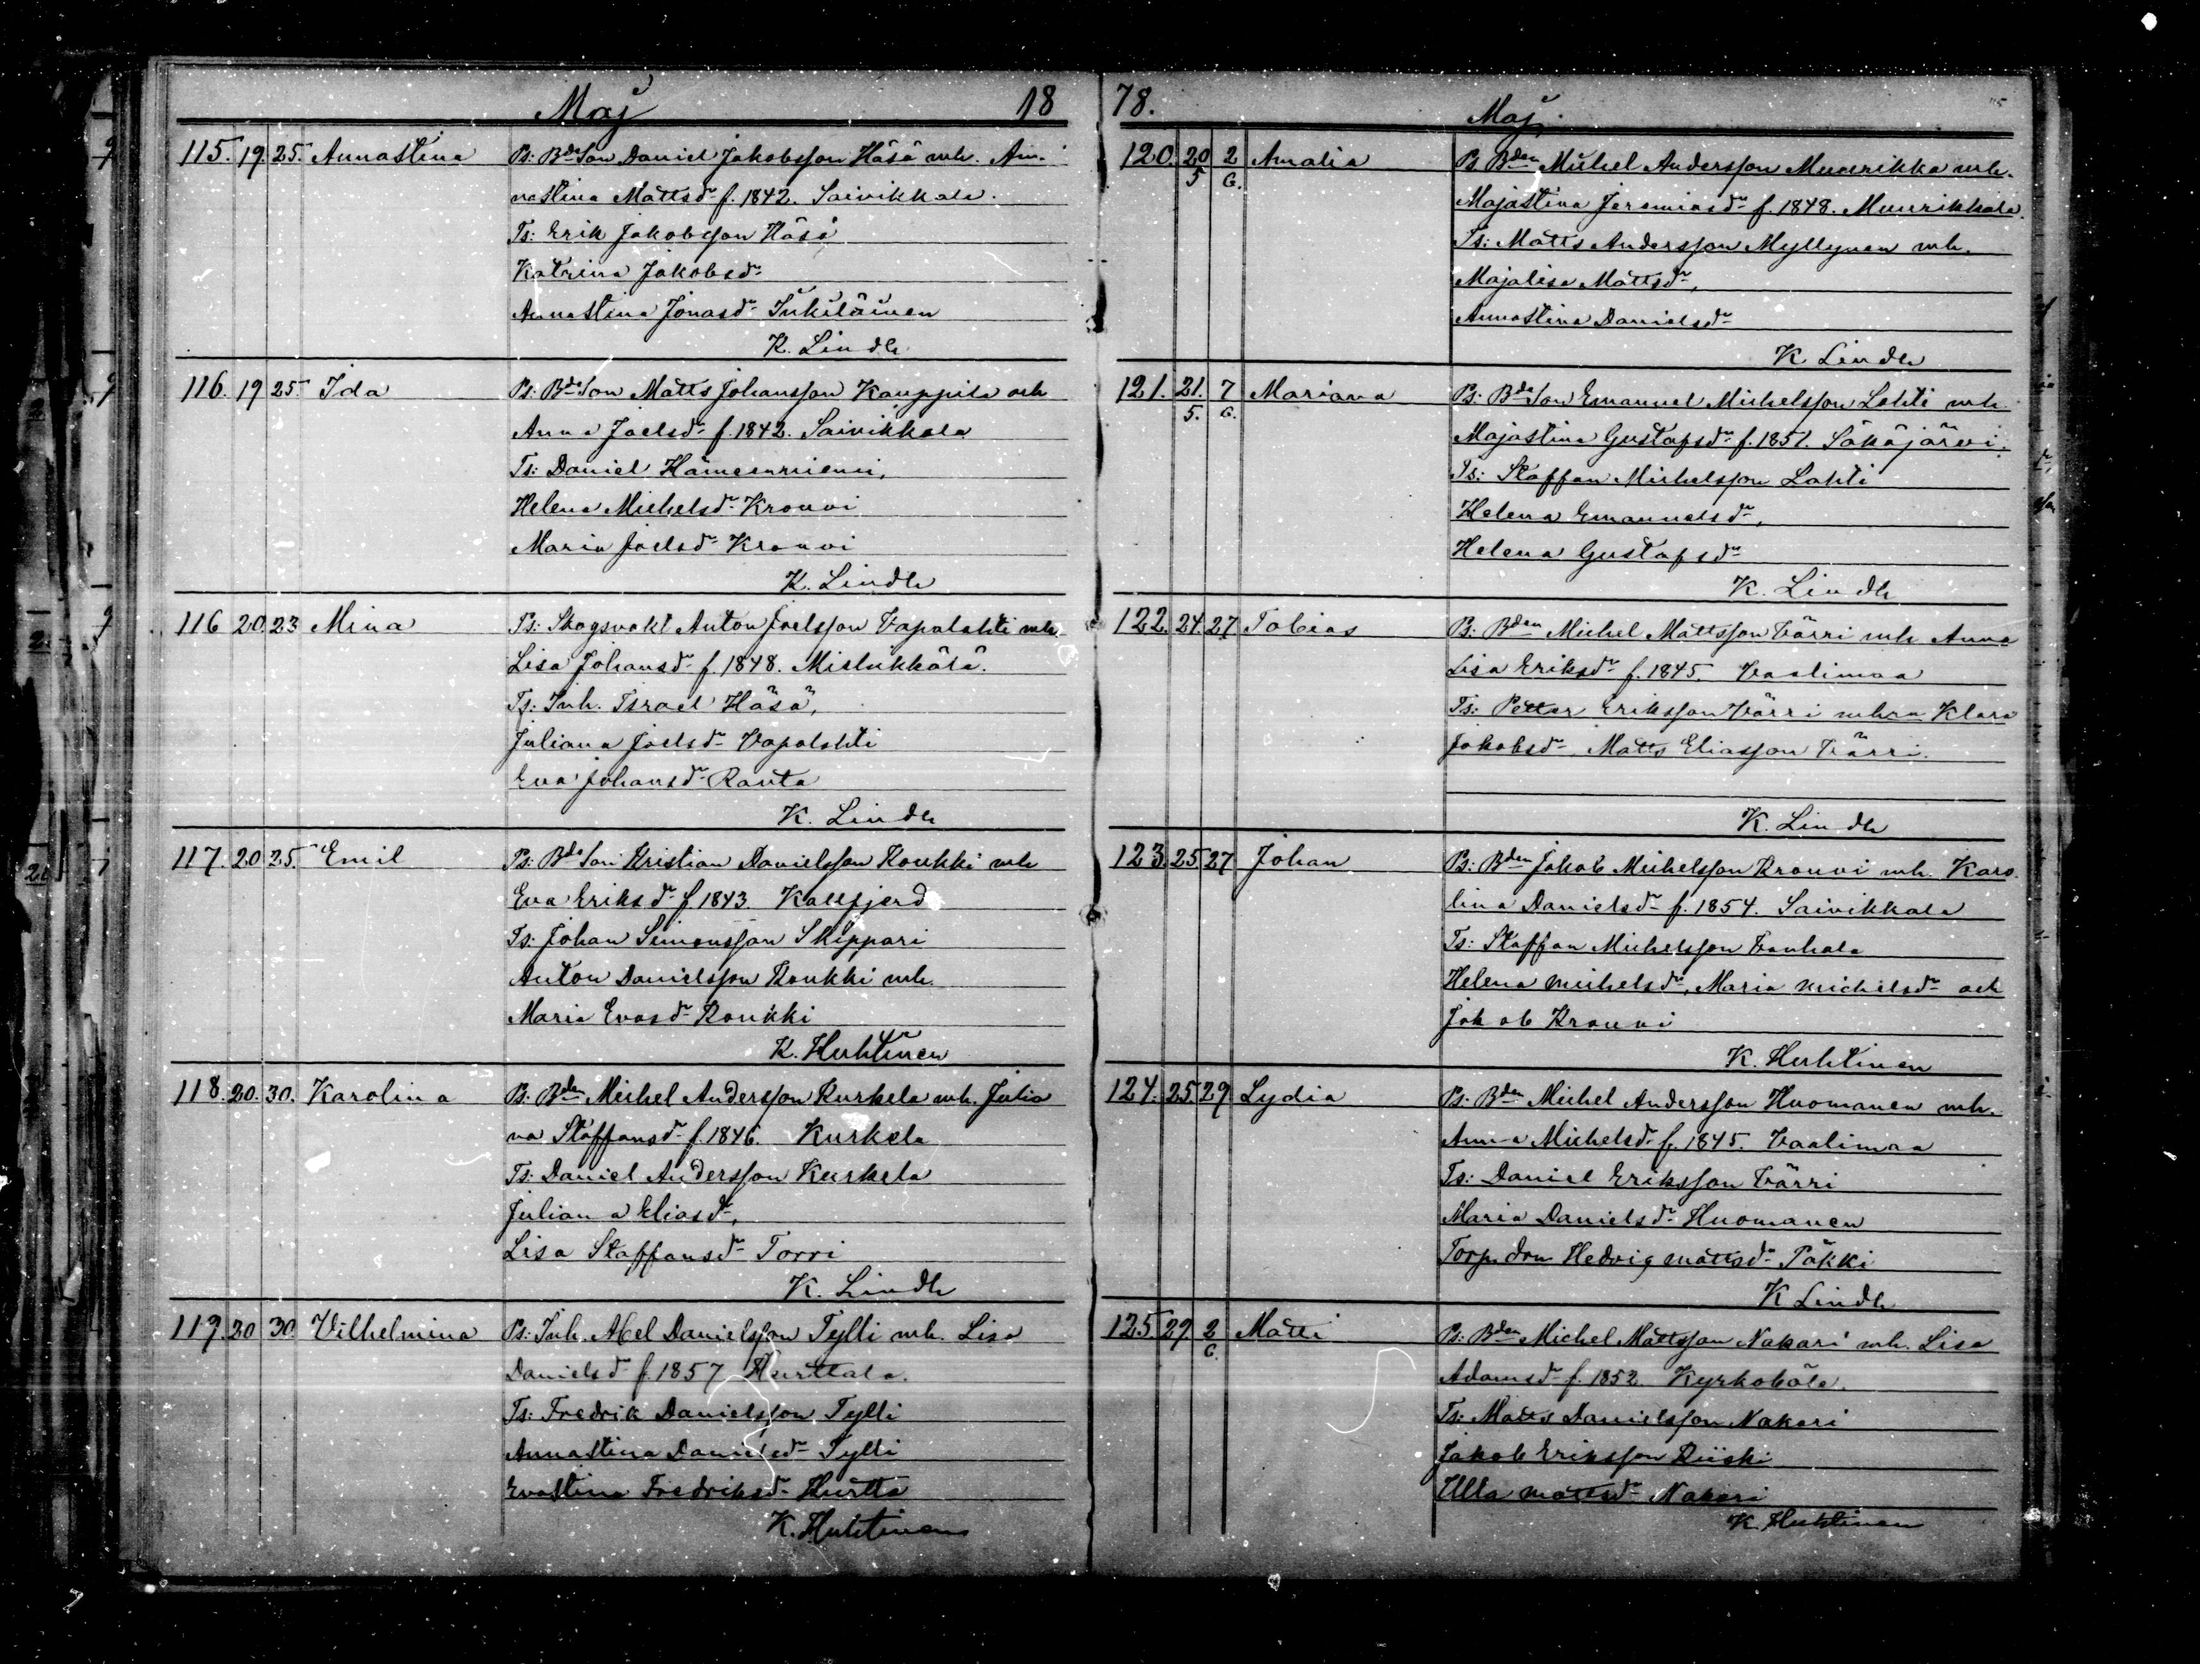 Maj 18
115. 19. 25. Annastina Ps: Bde Son Daniel Jakobsson Häsä mh. An-
nastina Mattsdr f. 1842. Saivikkala.
Ts: Erik Jakobsson Häsä
Katrina Jakobsdr
Annastina Jonasdr Inkiläinen
K. Lindh
116. 19 25. Ida Ps: Bde Son Matts Johansson Kauppila och
Anna Joelsdr f. 1842. Saivikkala
Ts: Daniel
Helena Michelsdr Krouvi
Maria Joelsdr Krouvi
K. Lindh
116 20. 23 Mina Ps: Skogsvakt Anton Joelsson Vapalahti mh.
Lisa Johansdr f. 1848.
Ts: Inh. Israel Häsä,
Juliana Joelsdr Vapalahti
Eva Johansdr Ranta
K. Lindh
117. 20. 25. Emil Ps: Bde Son Kristian Danielsson Koukki mh
Eva Eriksdr f. 1843. Kallfjerd
Ts: Johan Simonsson Skippari
Anton Danielsson Koukki mh.
Maria Evasdr Koukki
K. Huhtinen
118. 20. 30. Karolina Ps. Bden Michel Andersson Kurkela mh. Julia
na Staffansdr f. 1846. Kurkela
Ts: Daniel Andersson Kurkela
Juliana Eliasdr,
Lisa Staffansdr Torri
K. Lindh
119. 20 30. Vilhelmina Ps: Inh. Abel Danielsson Tylli mh. Lisa
Danielsdr f. 1857 Hurttala.
Ts: Fredrik Danielsson Tylli
Annastina Danielsdr Tylli
Evastina Fredriksdr Hurtta
K. Huhtinen
78. Maj.
120. 20/5 2/6. Amalia Ps. Bden Michel Andersson Muurikka mh.
Majastina Jeremiasdr f. 1848. Muurikkala.
Ts: Matts Andersson Myllynen mh.
Majalisa Mattsdr,
Annastina Danielsdr
K Lindh
121. 21./5. 7/6. Mariana Ps: Bde Son Emanuel Michelsson Lahti mh.
Majastina Gustafsdr f. 1851. Säkäjärvi.
Ts: Staffan Michelsson Lahti
Helena Emanuelsdr,
Helena Gustafsdr
K. Lindh
122. 24. 27 Tobias Ps: Bden Michel Mattsson Värri mh Anna
Lisa Eriksdr f. 1845. Vaalimaa
Ts: Petter Eriksson Värri Klara
Jakobsdr Matts Eliasson Värri.
K. Lindh
123. 25. 27 Johan Ps: Bden Jakob Michelsson Krouvi mh. Karo
lina Danielsdr f. 1854. Saivikkala
Ts: Staffan Michelsson Vanhala
Helena Michelsdr, Maria Michelsdr och
Jakob Krouvi
K. Huhtinen
124. 25. 29 Lydia Ps. Bden Michel Andersson Huomanen mh.
Anna Michelsdr f. 1845. Vaalimaa
Ts: Daniel Eriksson Värri
Maria Danielsdr Huomanen
Torp. drn Hedvig Mattsdr Päkki
K Lindh
125 29 2/6. Matti Ps: Bden Michel Mattsson Nakari mh. Lisa
Adamsdr f. 1852. Kyrkoböle.
Ts: Matts Danielsson Nakari
Jakob Eriksson Kiiski
Ulla Mattsdr Nakari
K. Huhtinen